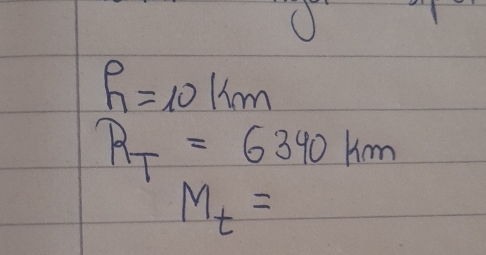 h = 10 Km
R_T = 6390 km
M_t =